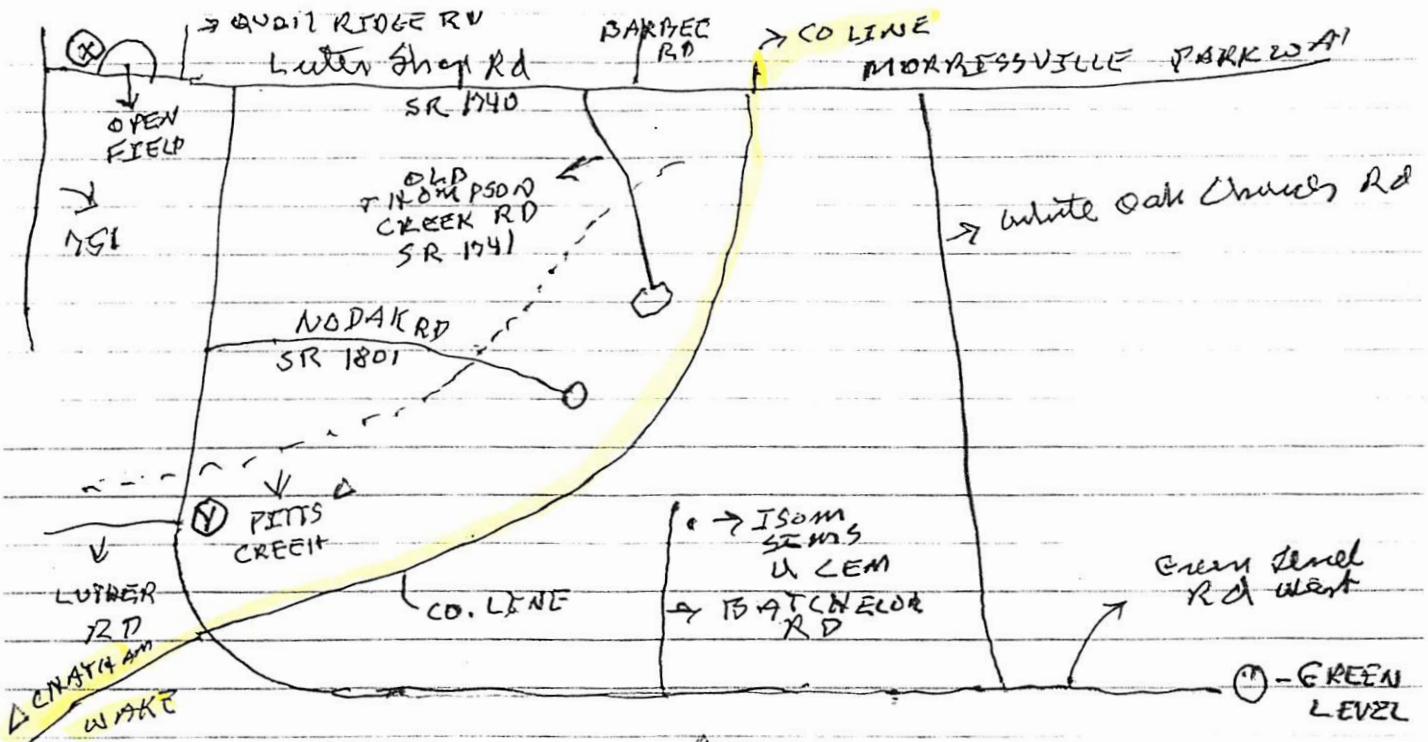 X
QUAIL RIDGE RD
BARBEE
RD
CO LINE
Luter Shop Rd
MORRISSVILLE PARKWAY
SR 1740
OPEN
FIELD
751
OLD
THOMPSON
CREEK RD
SR 1741
White Oak Church Rd
NODAK RD
SR 1801
Y
PITTS
CREEK
LUTHER
RD
CO. LINE
ISOM
SIMS
U CEM
BATCHELOR
RD
Green Level
Rd West
CHATHAM
WAKE
GREEN
LEVEL